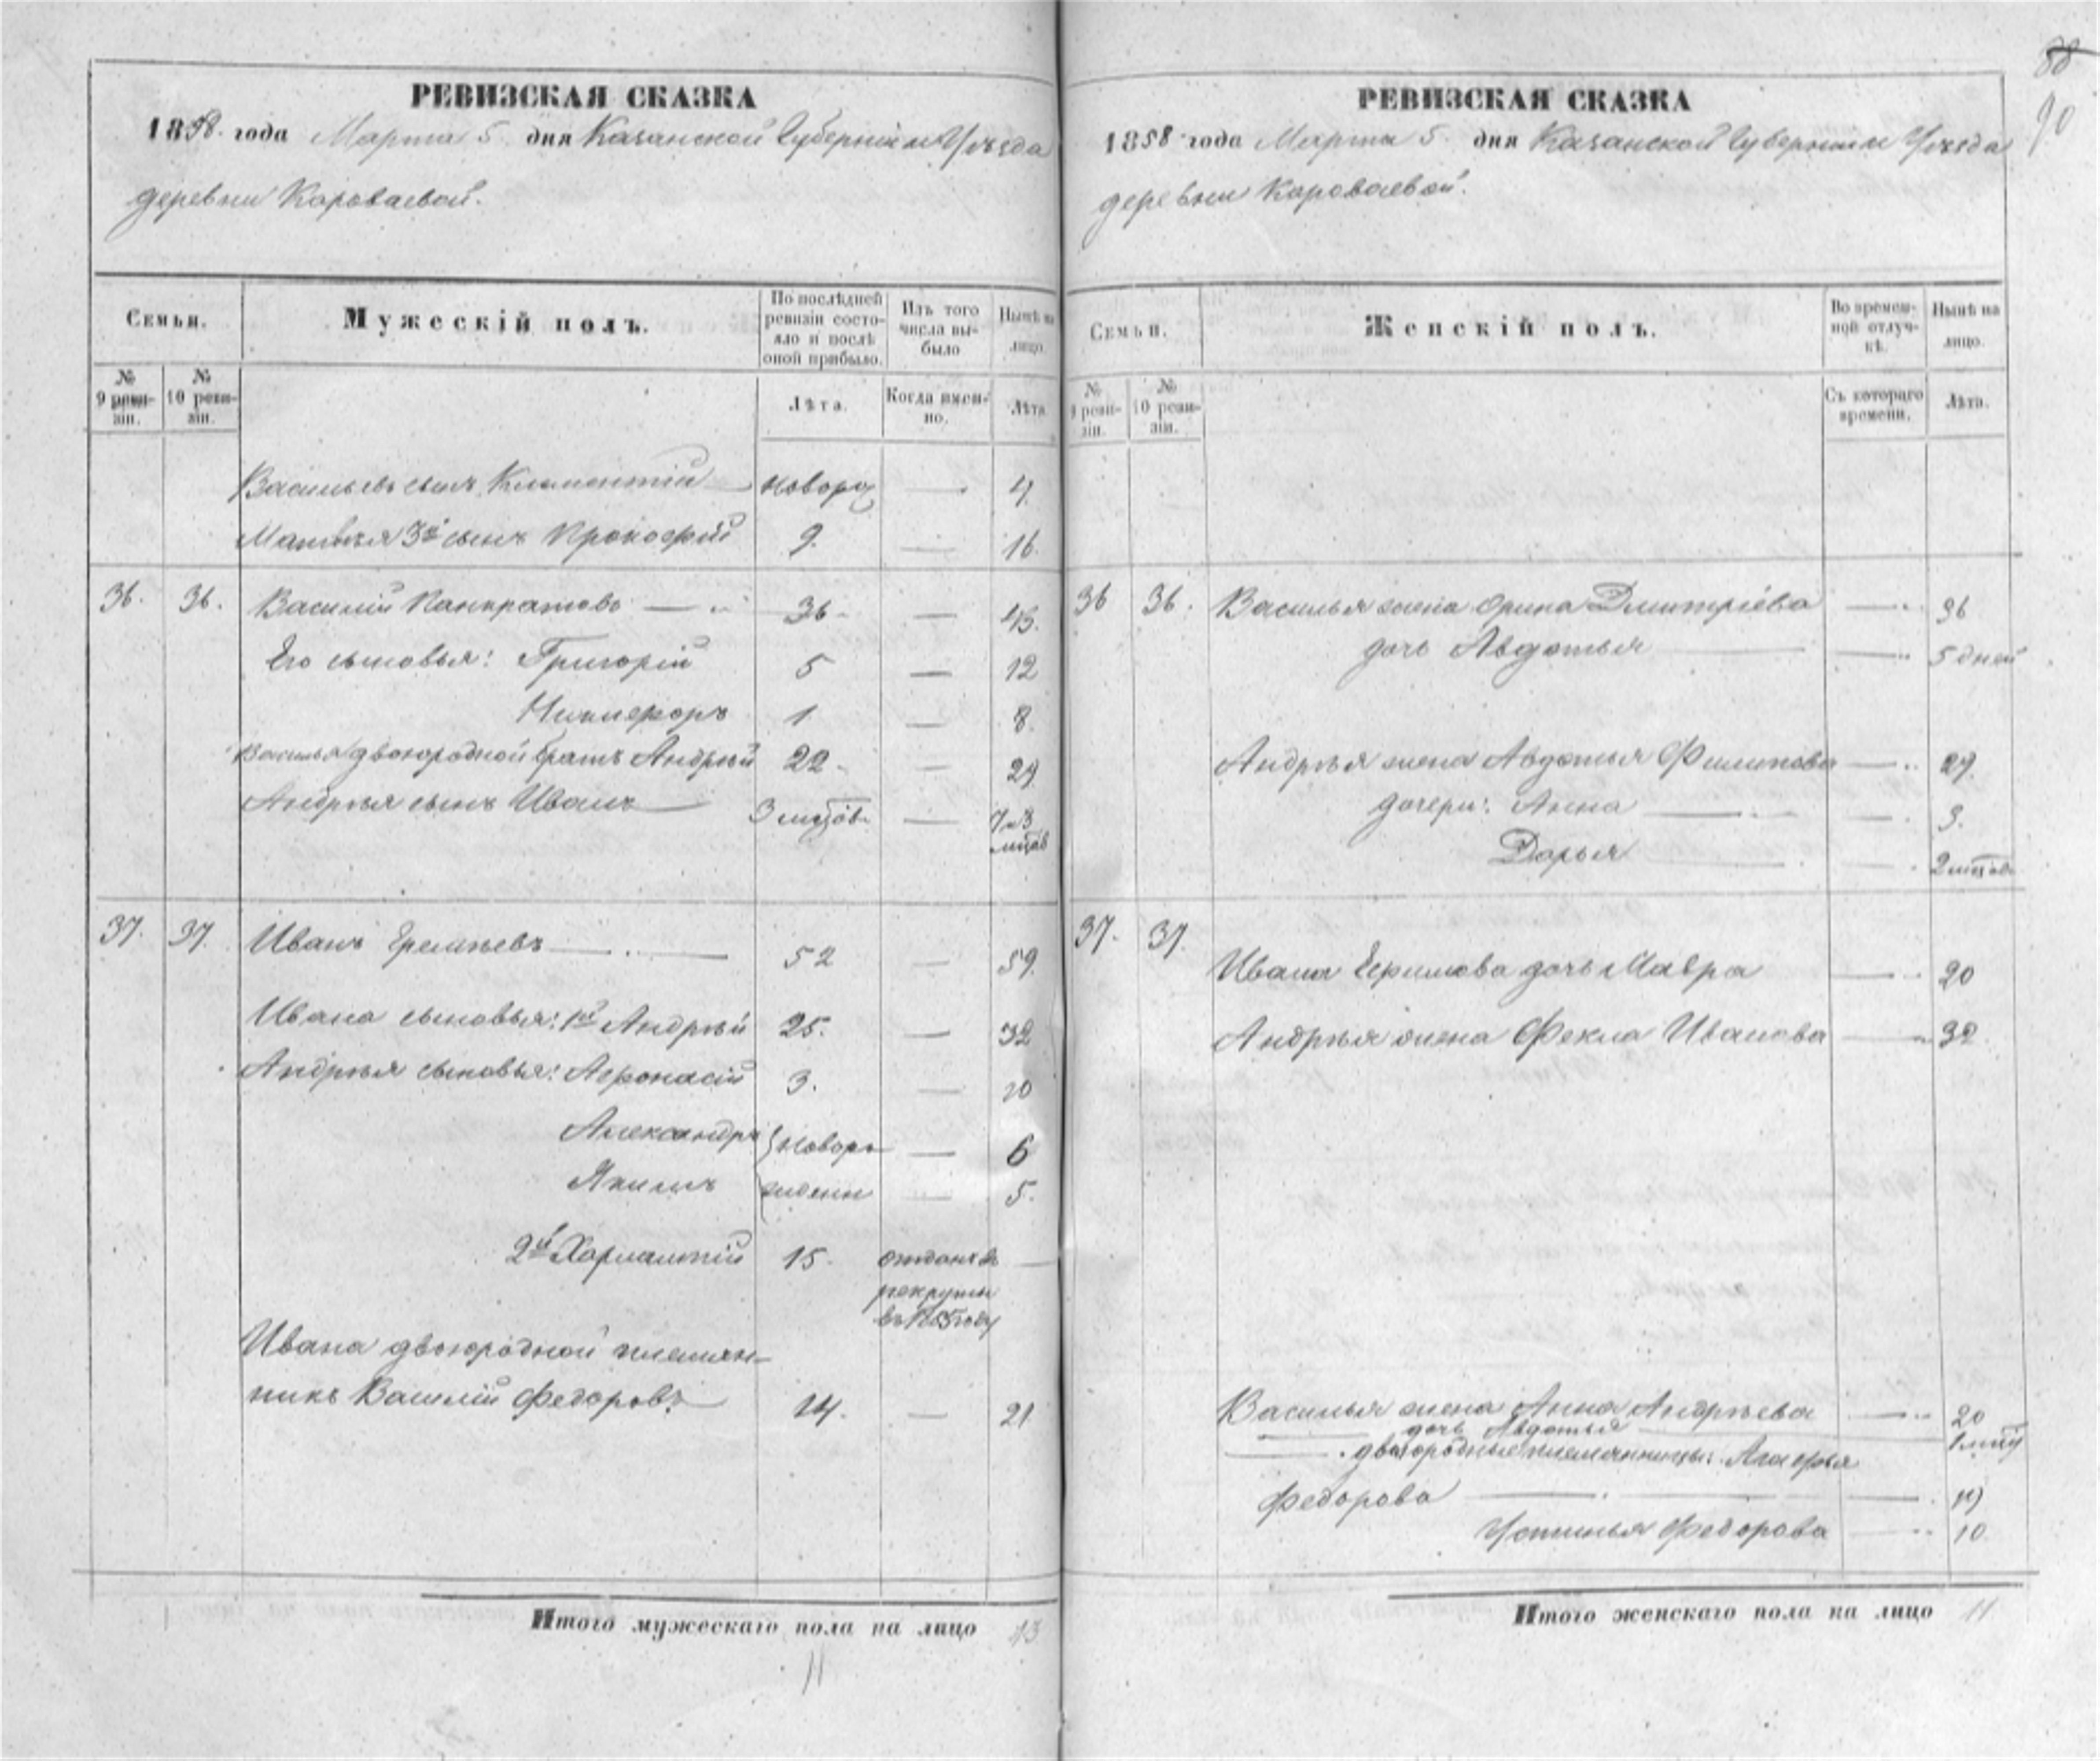 88
90
РЕВИЗСКАЯ СКАЗКА
1858 года Марта 5 дня Казанской Губернии и Уѣзда
деревни Караваевой.
Семьи.
Мужескій полъ.
По послѣдней ревизіи состояло и послѣ оной прибыло.
Изъ того числа выбыло
Нынѣ на лицо.
№ 9 ревизіи.
№ 10 ревизіи.
Лѣта.
Когда именно.
Лѣта.
Васильевъ сынъ Климентій новорож — 4.
Матвѣя 3й сынъ Прокофій 9. — 16.
36. 36. Василій Панкратовъ — 36 — 43.
Его сыновья: Григорій 5 — 12
Никифоръ 1 — 8.
Василья двоюродной братъ Андрей 22 — 29
Андрѣя сынъ Иванъ 3 мцов — 7 и 3 мцов
37. 37. Иванъ Еремѣевъ — 52 — 59.
Ивана сыновья: 1й Андрѣй 25. — 32
Андрѣя сыновья: Афонасій 3. — 10
Александръ новоро — 6
Якимъ жденн — 5.
2й Харлампій 15. отданъ въ —
рекруты
въ 1855 году
Ивана двоюродной племян-
никъ Василій Федоровъ 14. — 21
Итого мужескаго пола на лицо 13
11
РЕВИЗСКАЯ СКАЗКА
1858 года Марта 5 дня Казанской Губернии и Уѣзда
деревни Караваевой.
Семьи.
Женскій полъ.
Во временной отлучкѣ.
Нынѣ на лицо.
№ 9 ревизіи.
№ 10 ревизіи.
Съ котораго времени.
Лѣта.
36 36. Василья жена Орина Дмитріева — 36
дочь Авдотья — 5 дней
Андрѣя жена Авдотья Филипова — 29.
дочери: Анна — 3.
Дарья — 2 мцов
37. 37. Ивана Ефимова дочь Мавра — 20
Андрѣя жена Фекла Иванова — 32
Василья жена Анна Андрѣева — 20
дочь Авдотья 1 мцу
— двоюродные племянницы: Агафья
Федорова — 19
Устинья Федорова — 10
Итого женскаго пола на лицо 11